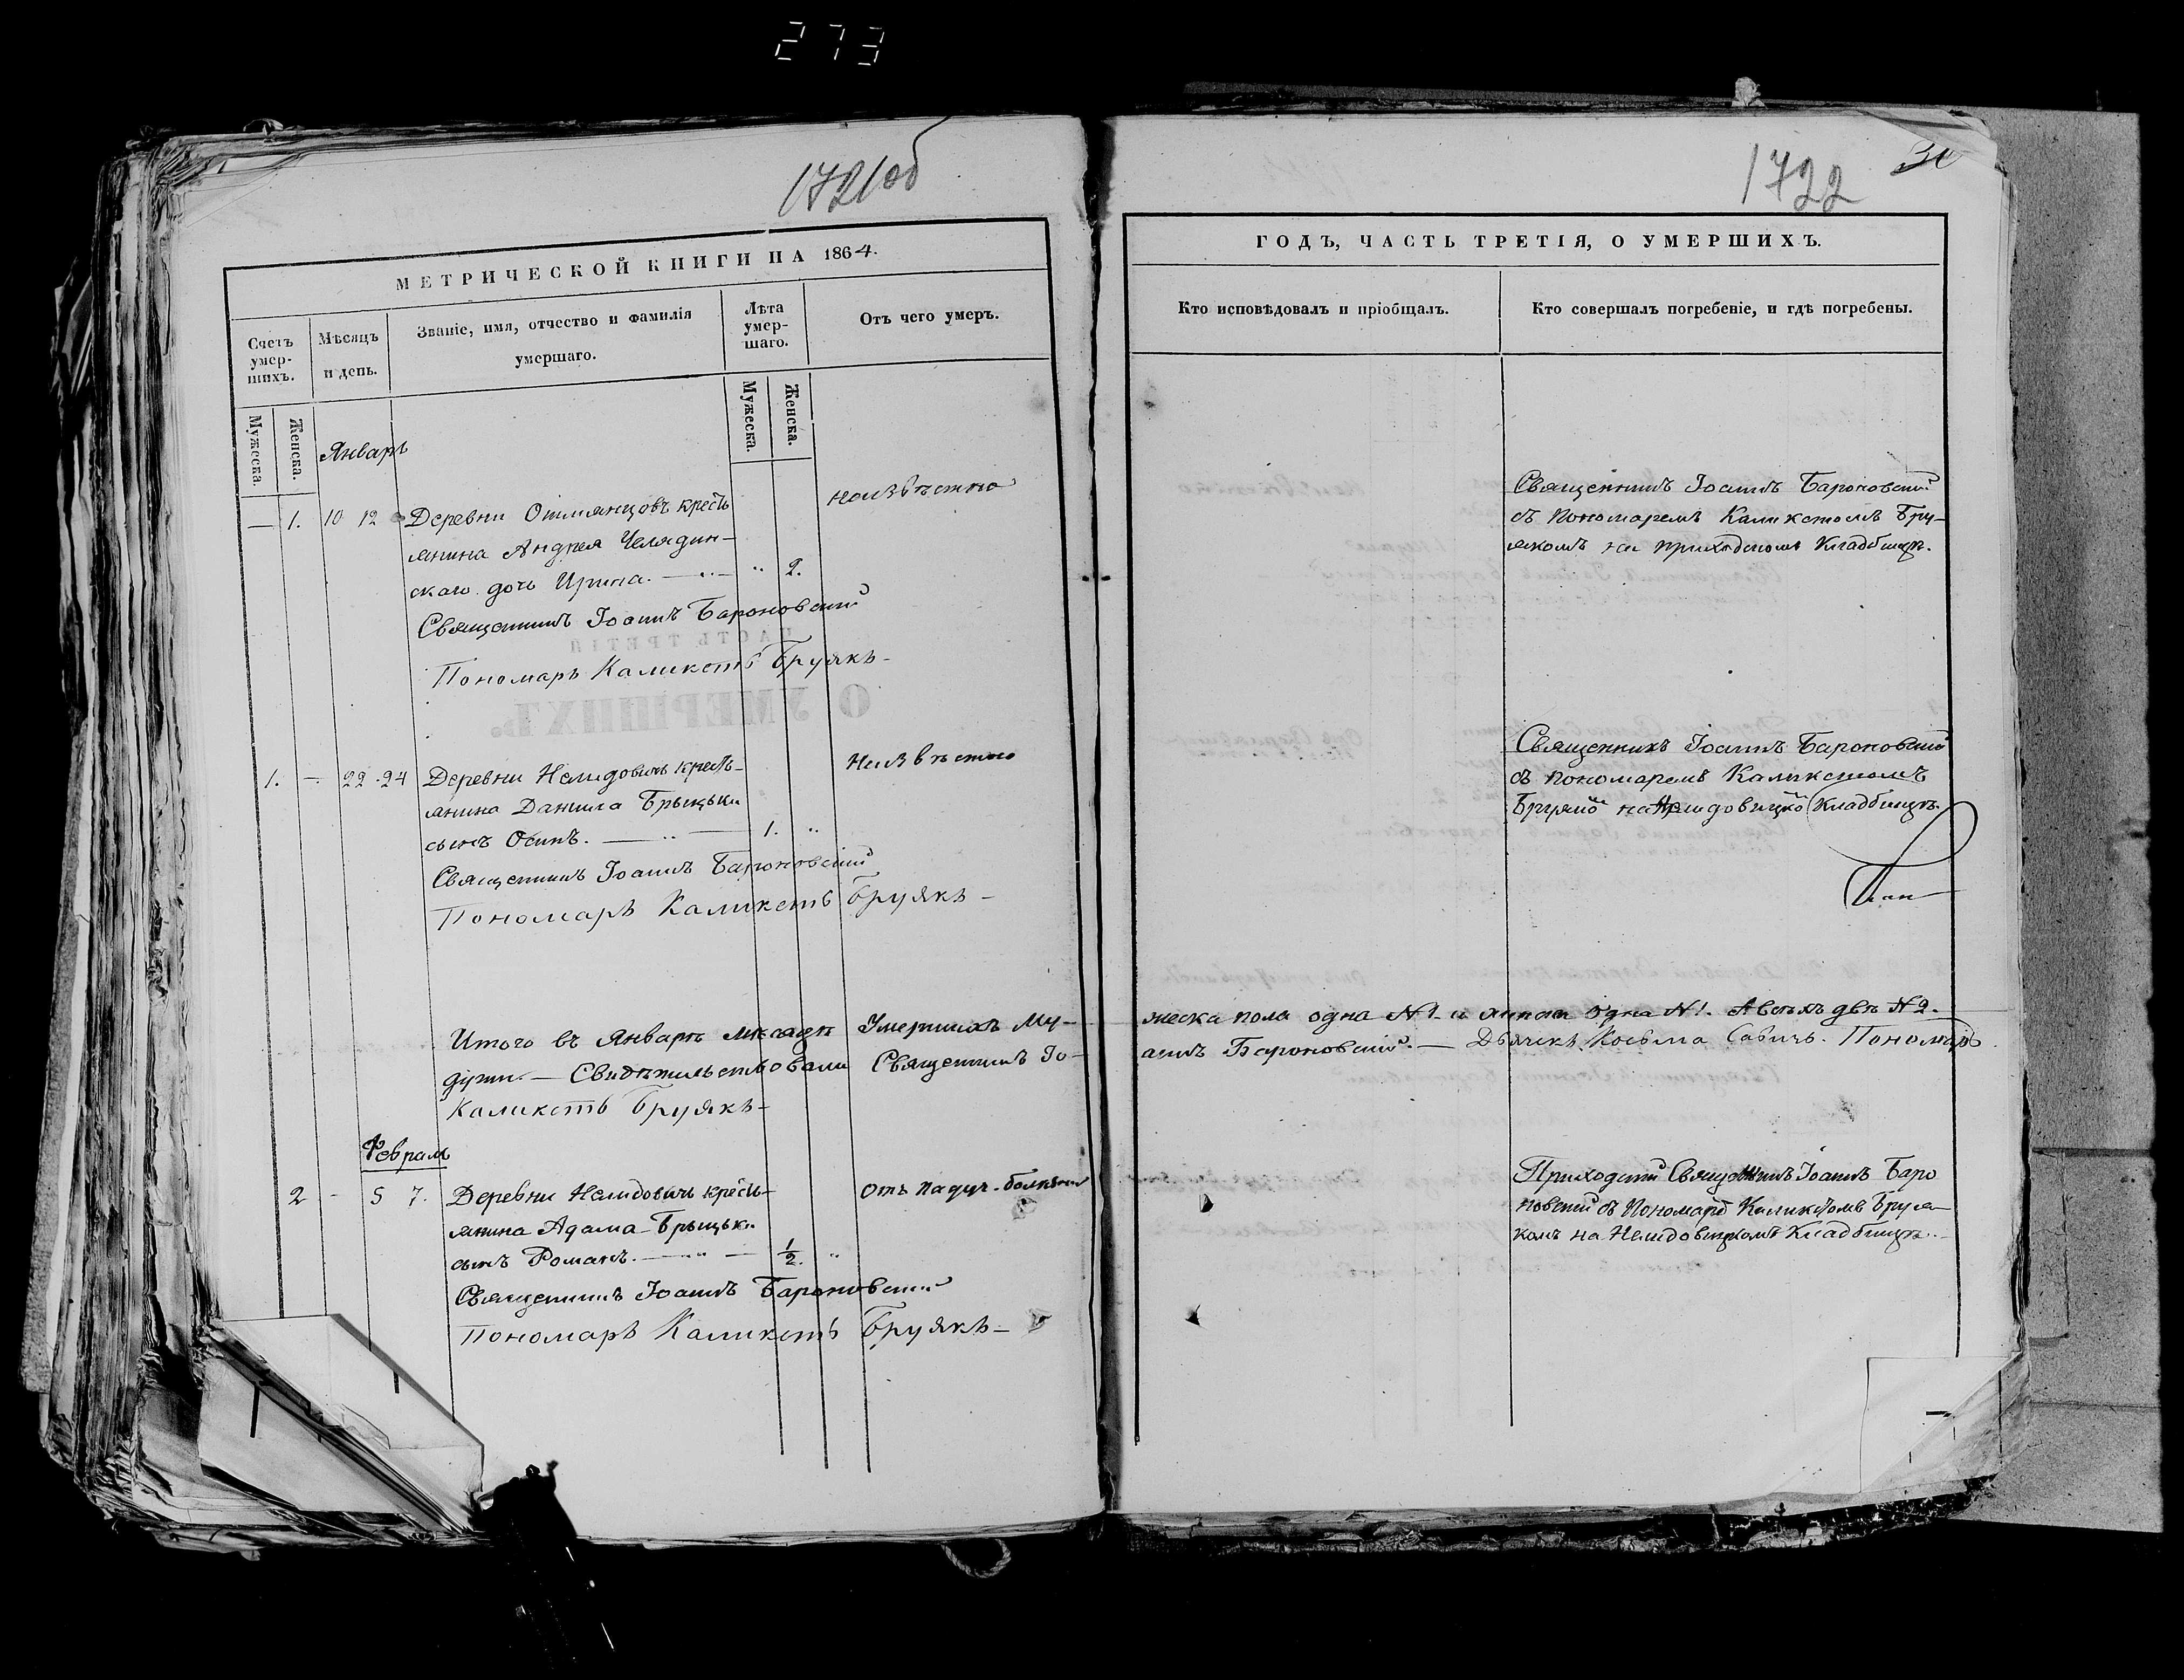 273
1721об
МЕТРИЧЕСКОЙ КНИГИ НА 1864.
Счетъ умер-шихъ.
Мѣсяцъ и день.
Званіе, имя, отчество и фамилія умершаго.
Лѣта умер-шаго.
Отъ чего умеръ.
Мужеска.
Женска.
Мужеска.
Женска.
Январь
— 1. 10 12 Деревни кресть
неизвѣстно
янина Андрея Челядин-
скаго дочь Ирина. — „ — „ 2.
Священникъ Іоаннъ Бароновскій
Пономарь Каликстъ Бруякъ-
1. — 22 24 Деревни Нелидовичь кресть-
Неизвѣстно
янина Данила Брыцьки
сынъ Осипъ. — „ — 1. „
Священникъ Іоаннъ Бароновскій
Пономарь Каликстъ Бруякъ-
Итого въ Январѣ мѣсяцѣ Умершихъ Му-
дути. — Свидѣтельствовали Священникъ Іо-
Каликстъ Бруякъ-
Февраль
2 - 5 7. Деревни Нелидовичь кресть-
отъ падуч. болѣзни
янина Адама Брыцьки
сынъ Романъ. — „ — 1/2. „
Священникъ Іоаннъ Бароновскій
Пономарь Каликстъ Бруякъ-
1722
ГОДЪ, ЧАСТЬ ТРЕТІЯ, О УМЕРШИХЪ.
Кто исповѣдовалъ и пріобщалъ.
Кто совершалъ погребеніе, и гдѣ погребены.
Священникъ Іоаннъ Бароновскій
съ пономаремъ Каликстомъ Бру-
якомъ на приходскомъ Кладбищѣ.
Священникъ Іоаннъ Бароновскій
съ пономаремъ Каликстомъ
на Нелидовицко Кладбищѣ.
жеска пола одна №1. и одна №1. А всѣхъ двѣ №2.
аннъ Бароновскій. — Дьячекъ Косьма Савичь. Пономарь
Приходскій Священникъ Іоаннъ Баро
новскій съ Пономаре Каликстомъ Бруя-
комъ на Нелидовицкомъ Кладбищѣ.